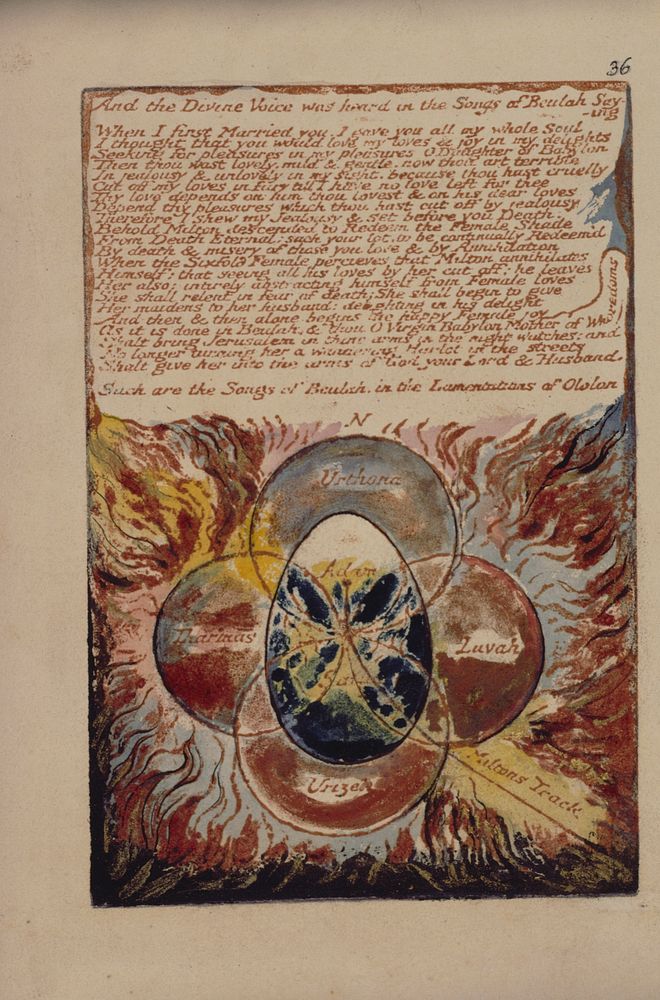 36
And the Divine Voice was heard in the Songs of Beulah Say-
ing
When I first Married you, I gave you all my whole Soul
I thought that you would love my loves & joy in my delights
Seeking for pleasures in my pleasures O Daughter of Babylon
Then thou wast lovely, mild & gentle, now thou art terrible
In jealousy & unlovely in my sight, because thou hast cruelly
Cut off my loves in fury till I have no love left for thee
Thy love depends on him thou lovest & on his dear loves
Depend thy pleasures which thou hast cut off by jealousy
Therefore I shew my Jealousy & set before you Death.
Behold Milton descended to Redeem the Female Shade
From Death Eternal; such your lot, to be continually Redeem'd
By death & misery of those you love & by Annihilation
When the Sixfold Female percieves that Milton annihilates
Himself: that seeing all his loves by her cut off: he leaves
Her also: intirely abstracting himself from Female loves
She shall relent in fear of death; She shall begin to give
Her maidens to her husband: delighting in his delight
And then & then alone begins the happy Female joy
As it is done in Beulah, & thou O Virgin Babylon Mother of Whoredoms
Shalt bring Jerusalem in thine arms in the night watches; and
No longer turning her a wandering Harlot in the streets
Shalt give her into the arms of God your Lord & Husband.
Such are the Songs of Beulah in the Lamentations of Ololon
N
Urthona
Adam
Tharmas
Luvah
Satan
Urizen
Miltons Track